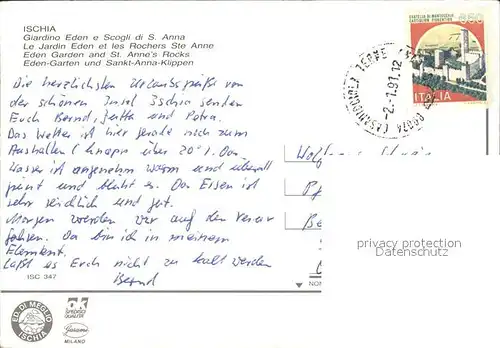 ISCHIA
Giardino Eden e Scogli di S. Anna
Le Jardin Eden et les Rochers Ste Anne
Eden Garden and St. Anne's Rocks
Eden-Garten und Sankt-Anna-Klippen
Die herzlichsten Urlaubsgrüße von
der schönen Insel Ischia senden
Euch Bernd, Jutta und Petra.
Das Wetter ist hier gerade noch zum
Aushalten (knapp über 20°). Das
Wasser ist angenehm warm und überall
grünt und blüht es. Das Essen ist
sehr reichlich und gut.
Morgen werden wir auf den Vesuv
fahsen. Da bin ich in meinem
Element.
Laßt es Euch nicht zu kalt werden
Bernd
ISC 347
ED. DI MEGLIO
ISCHIA
OK
SPECIAL
QUALITÄT
MILANO
650
CASTELLO DI MONTECCHIO
CASTIGLION FIORENTINO
ITALIA
TERME
-2.-1.91.12
80074 CASAMICCIOLA
Wolfgang
privacy protection
Datenschutz